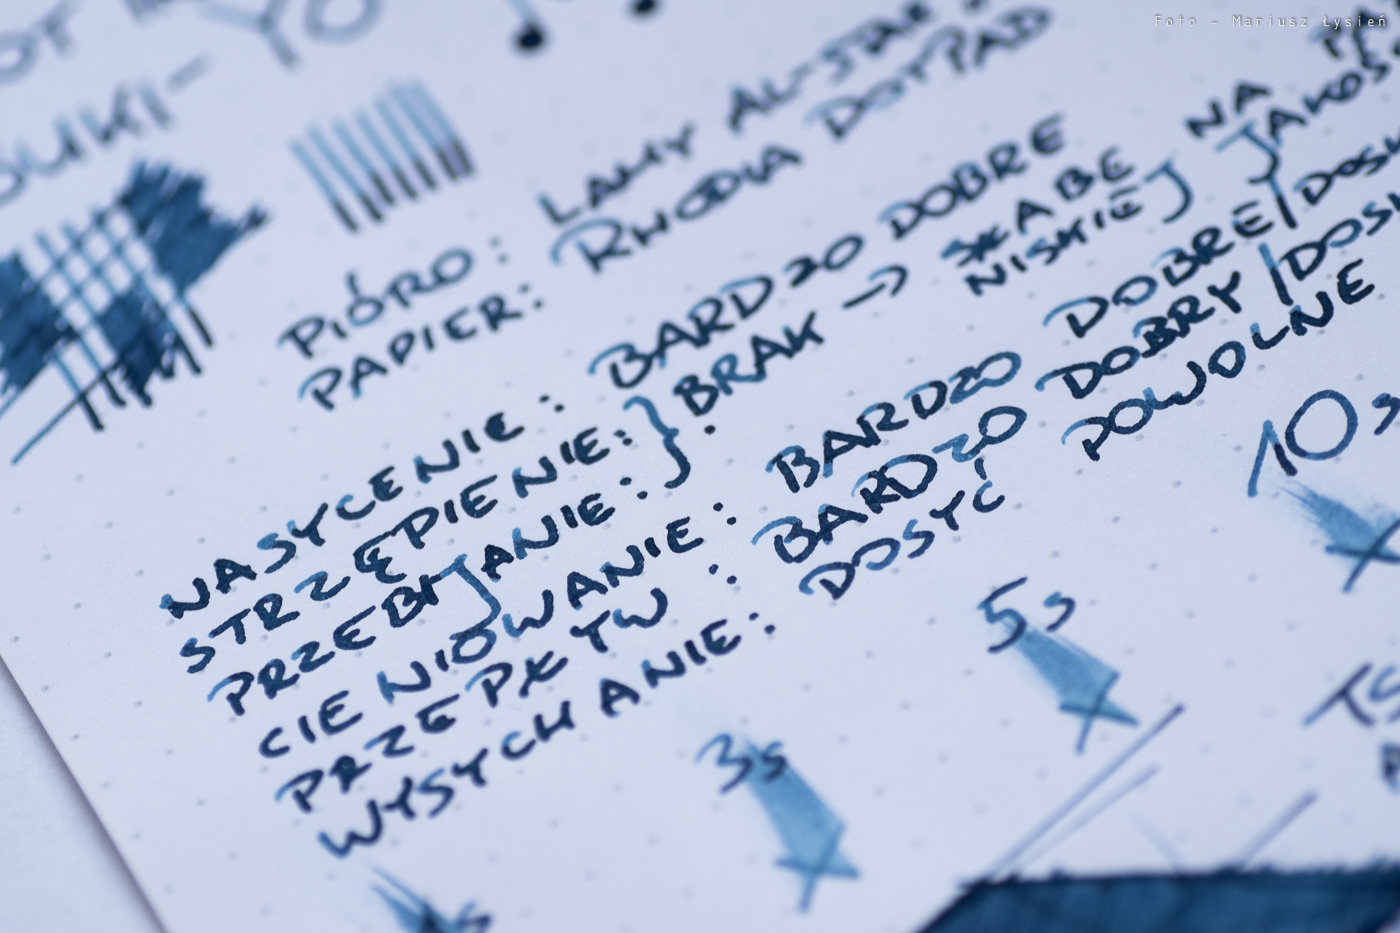 Foto - Mariusz Łysień
PIÓRO: LAMY AL-STAR
PAPIER: RHODIA DOTPAD
NASYCENIE: BARDZO DOBRE
STRZĘPIENIE: } BRAK → SŁABE NA
PRZEBIJANIE: NISKIEJ JAKOŚ
CIENIOWANIE: BARDZO DOBRE/DOSK
PRZEPŁYW: BARDZO DOBRY/DOSK
WYSYCHANIE: DOSYĆ POWOLNE
10s
5s
3s